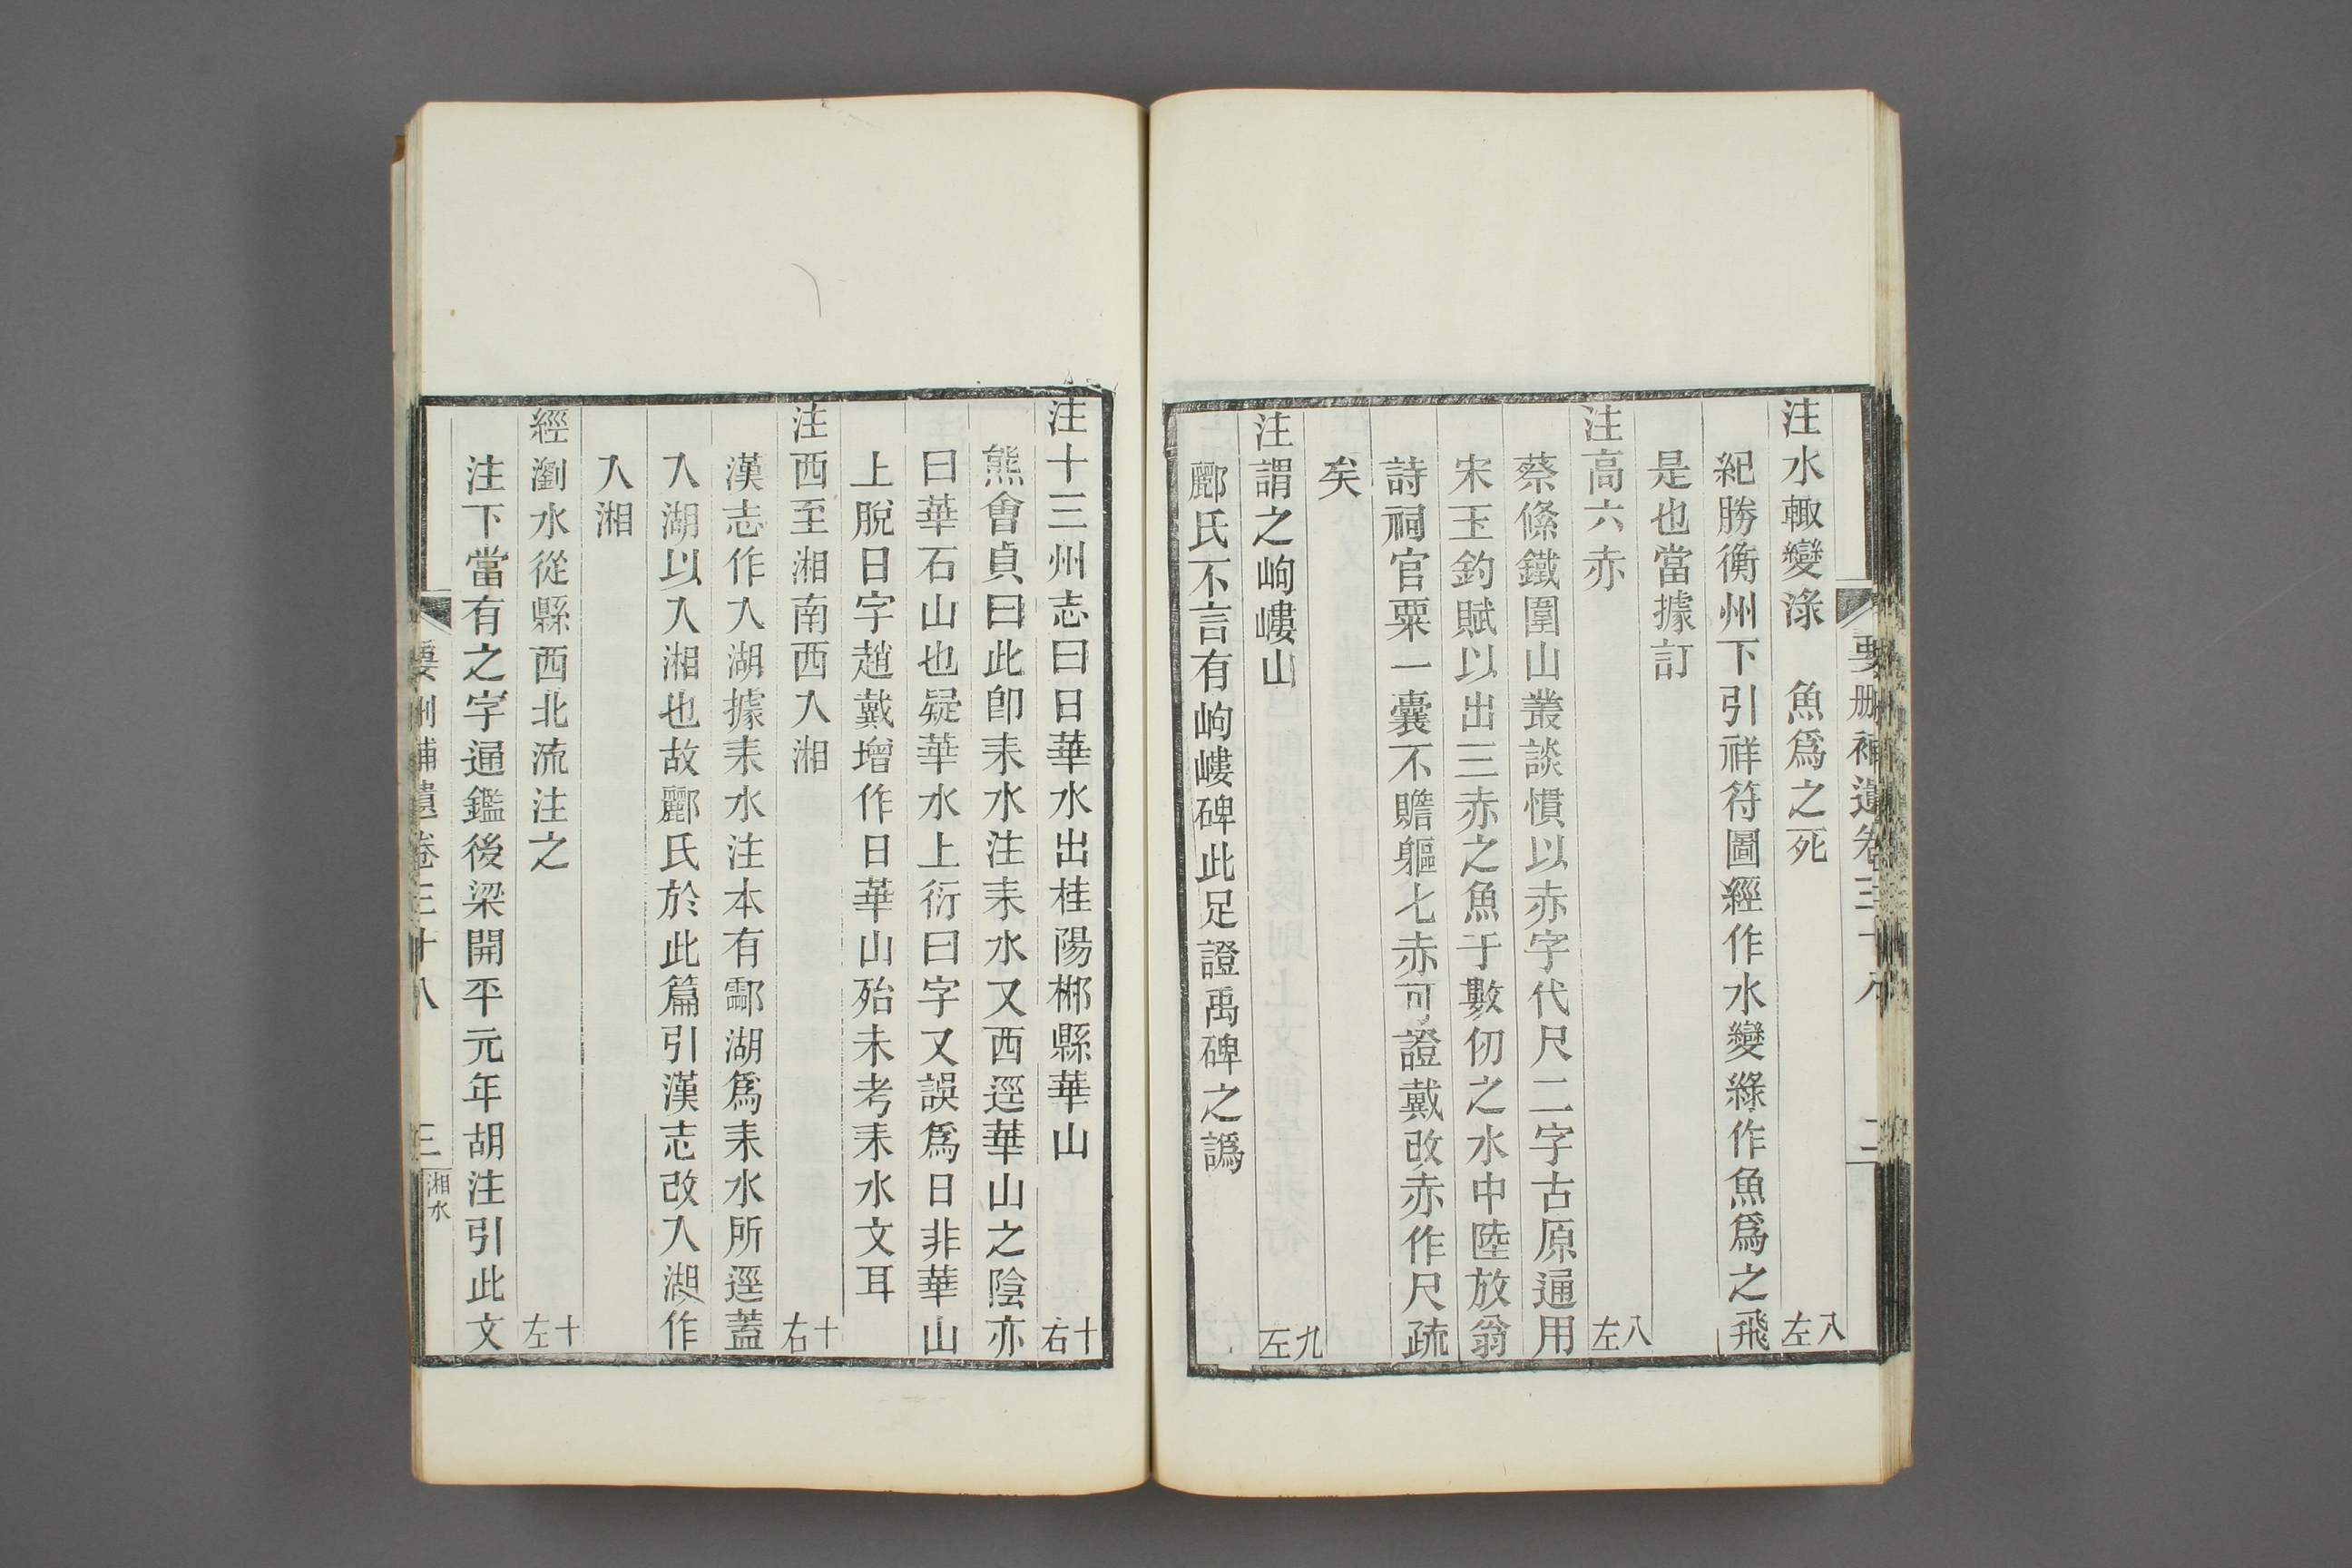 要刪補遺卷三十八　二
注水輙變淥　魚爲之死　八左
紀勝衡州下引祥符圖經作水變綠作魚爲之飛
是也當據訂
注高六赤　八左
蔡絛鐵圍山叢談慣以赤字代尺二字古原通用
宋玉釣賦以出三赤之魚于數仞之水中陸放翁
詩祠官粟一囊不贍軀七赤可證戴改赤作尺疏
矣
注謂之岣嶁山　九左
酈氏不言有岣嶁碑此足證禹碑之譌
注十三州志曰日華水出桂陽郴縣華山　十右
熊會貞曰此卽耒水注耒水又西逕華山之陰亦
曰華石山也疑華水上衍曰字又誤爲日非華山
上脫日字趙戴增作日華山殆未考耒水文耳
注西至湘南西入湘　十右
漢志作入湖據耒水注本有酃湖爲耒水所逕蓋
入湖以入湘也故酈氏於此篇引漢志改入湖作
入湘
經瀏水從縣西北流注之　十左
注下當有之字通鑑後梁開平元年胡注引此文
要刪補遺卷三十八　三　湘水